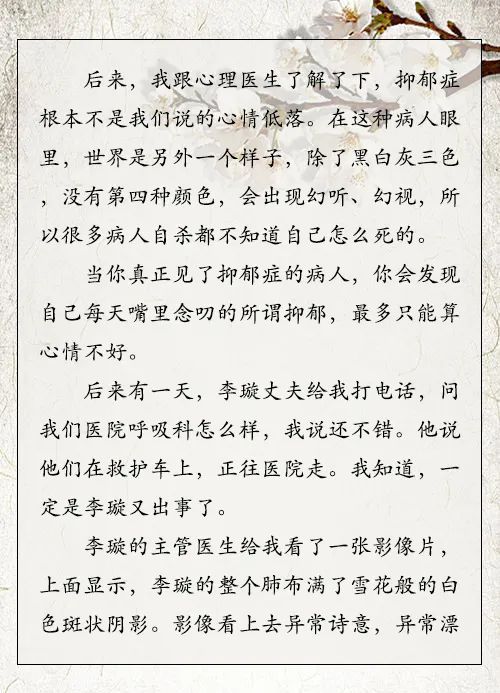 后来，我跟心理医生了解了下，抑郁症
根本不是我们说的心情低落。在这种病人眼
里，世界是另外一个样子，除了黑白灰三色
，没有第四种颜色，会出现幻听、幻视，所
以很多病人自杀都不知道自己怎么死的。
当你真正见了抑郁症的病人，你会发现
自己每天嘴里念叨的所谓抑郁，最多只能算
心情不好。
后来有一天，李璇丈夫给我打电话，问
我们医院呼吸科怎么样，我说还不错。他说
他们在救护车上，正往医院走。我知道，一
定是李璇又出事了。
李璇的主管医生给我看了一张影像片，
上面显示，李璇的整个肺布满了雪花般的白
色斑状阴影。影像看上去异常诗意，异常漂